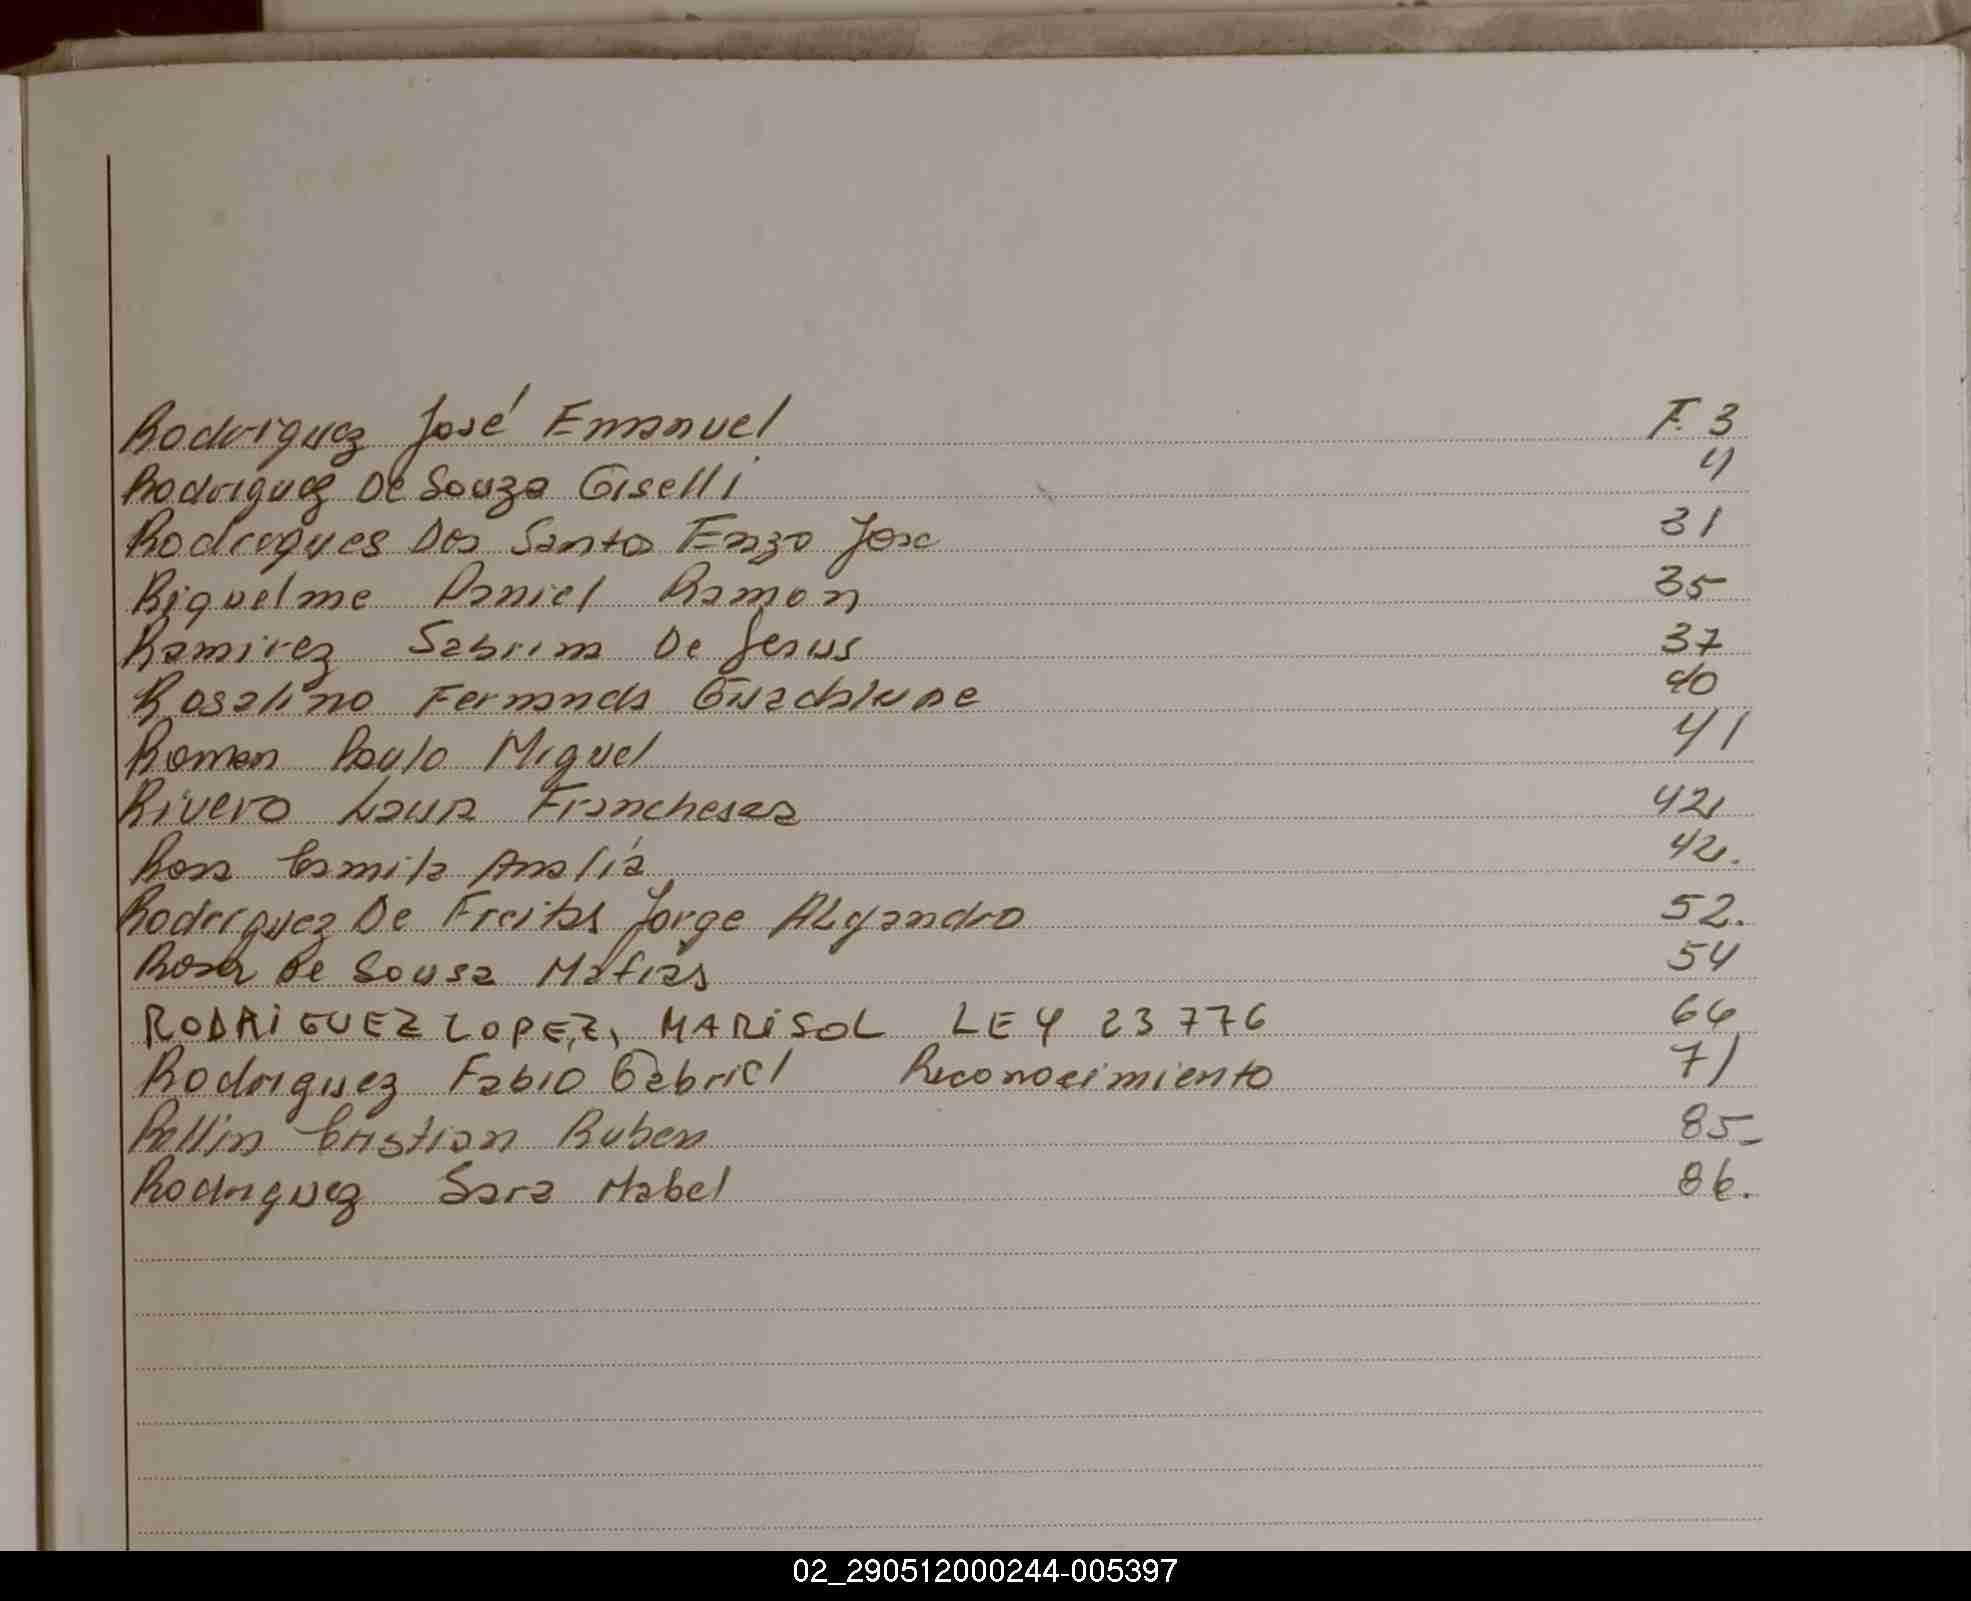 Rodriguez José Emanuel F. 3
Rodriguez De Souza Giselli 4
Rodrogues Dos Santos Enzo Jose 31
Riquelme Daniel Ramon 35
Ramirez Sabrina De Jesus 37
Rosalino Fernanda Guadalupe 40
Roman Paulo Miguel 41
Rivero Laura Franchesca 42
Rosa Camila Analía 42.
Rodriguez De Freitas Jorge Alejandro 52.
Rosa De Sousa Matias 54
RODRIGUEZ LOPEZ, MARISOL LEY 23776 66
Rodriguez Fabio Gabriel Reconocimiento 71
Cristian Ruben 85-
Rodriguez Sara Mabel 86.
02_290512000244-005397